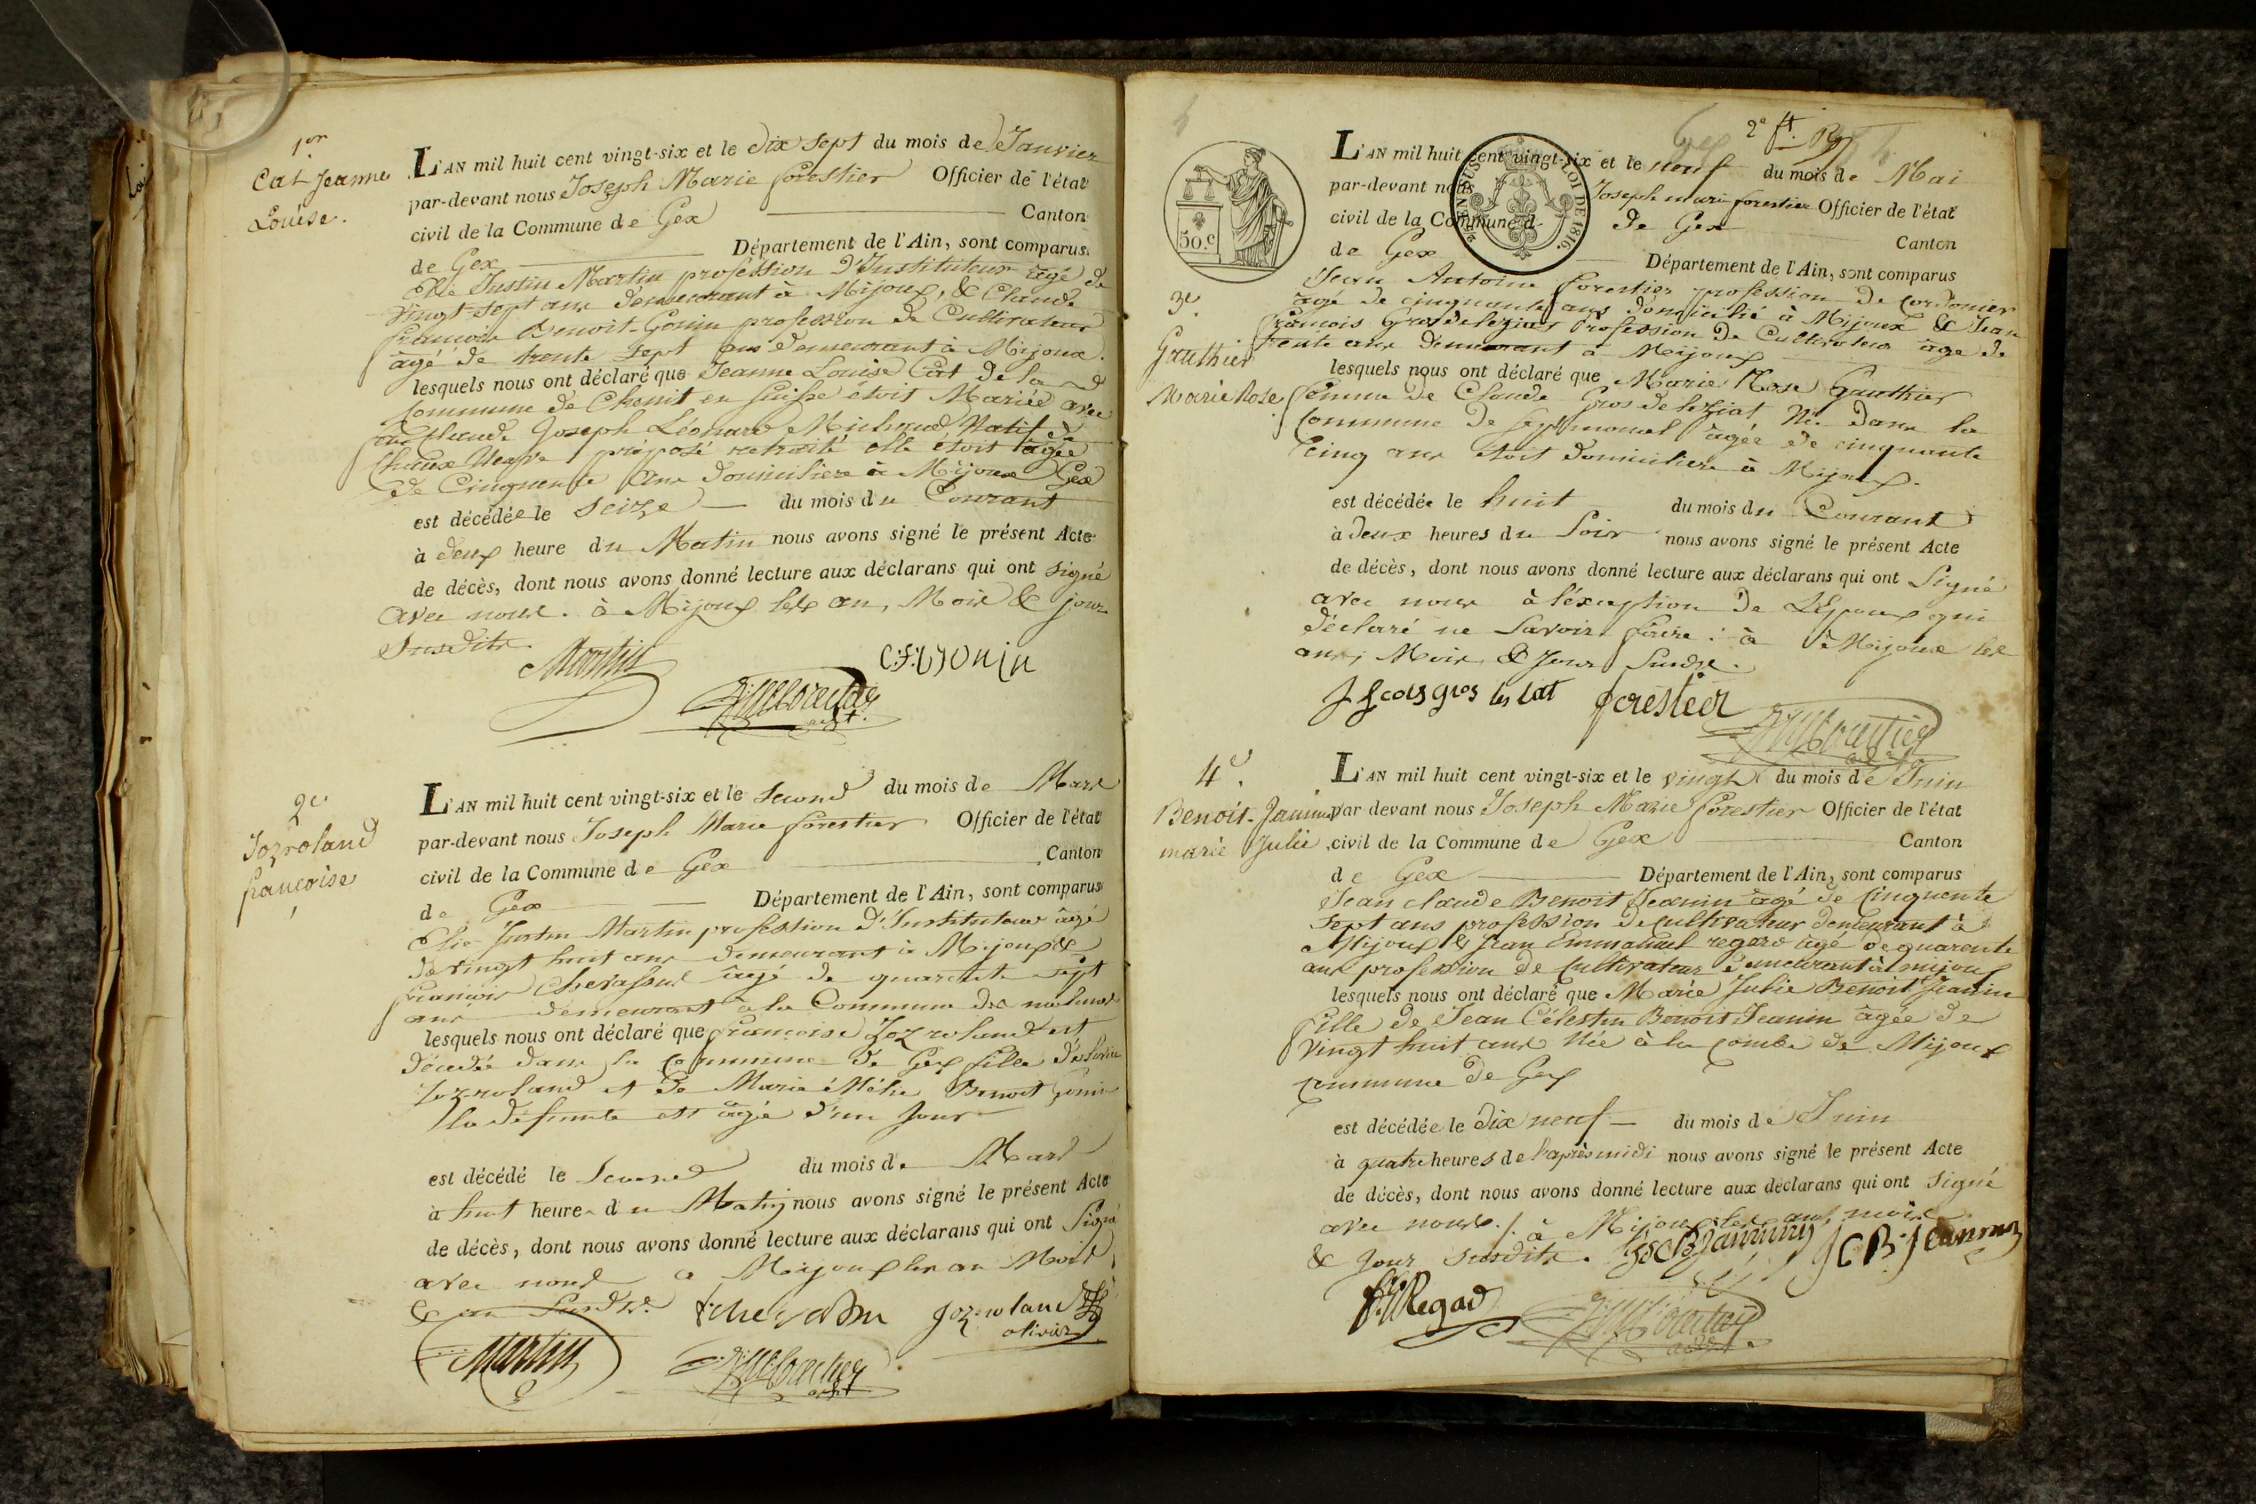 1er
Cat Jeanne
Louise.
L'AN mil huit cent vingt-six et le dix sept du mois de Janvier
par-devant nous Joseph Marie forestier Officier de l'état
civil de la Commune de Gex Canton
de Gex Département de l'Ain, sont comparus
Elie Justin Martin profession d'Instituteur âgé de
vingt-sept ans demeurant à Mijoux, & Claude
françois Benoit-Gonin profession de Cultivateur
âgé de trente sept ans demeurant à Mijoux.
lesquels nous ont déclaré que Jeanne Louise Cat de la
Commune de Chenit en Suisse étoit Mariée avec
Claude Joseph Léonard Michaud Natif de
Chaux Neuve préposé retraité elle étoit âgée
de Cinquente ans domiciliere à Mijoux Gex
est décédée le seize du mois du Courant
à deux heure du Matin nous avons signé le présent Acte
de décès, dont nous avons donné lecture aux déclarans qui ont signé
avec nous. à Mijoux les an, Mois & jour
Susdits
Martin
C.F.B Gonin
J: M Forestier
adjt.
2e
Jozroland
françoise
L'AN mil huit cent vingt-six et le second du mois de Mars
par-devant nous Joseph Marie forestier Officier de l'état
civil de la Commune de Gex Canton
de Gex Département de l'Ain, sont comparus
Elie Justin Martin profession d'Instituteur âgé
de vingt huit ans demeurant à Mijoux &
françois Chevassus âgé de quarente sept
ans demeurant à la Commune des moulunes
lesquels nous ont déclaré que françoise Jozroland est
décédée dans la Commune de Gex fille d'olivier
Jozroland et de Marie Mélie Benoit Gonin
la défunte est âgée d'un jour
est décédé le Second du mois de Mars
à huit heures du Matin nous avons signé le présent Acte
de décès, dont nous avons donné lecture aux déclarans qui ont Signé
avec nous a Mijoux les an Mois
& an Susdit.
Jozroland
olivier
Martin
J: M Forestier
adjt
Gex 2e ft.
50.c
LOI DE 1816.
L'AN mil huit cent vingt-six et le neuf du mois de Mai
par-devant nous Joseph marie forestier Officier de l'état
civil de la Commune d de Gex Canton
de Gex Département de l'Ain, sont comparus
3e
Gauthier
Marie Rose
Jean Antoine forestier profession de cordonier
âgé de cinquante ans domicilié à Mijoux & Jean
françois Gros deleziat profession de Cultivateur âgé de
trente ans demeurant à Mijoux
lesquels nous ont déclaré que Marie Rose Gauthier
femme de Claude Gros deleziat Née dans la
Commune de Septmoncel âgée de cinquante
Cinq ans étoit domiciliere à Mijoux.
est décédée le huit du mois du Courant
à deux heures du Soir nous avons signé le présent Acte
de décès, dont nous avons donné lecture aux déclarans qui ont Signé
avec nous à l'éxception de L'Epoux qui
déclaré ne Savoir faire: à Mijoux les
ans, Mois & Jour Susdit.
forestier
J: M Forestier
4e.
Benoit-Jannin
marie Julie
L'AN mil huit cent vingt-six et le vingt du mois de Juin
Par devant nous Joseph Marie forestier Officier de l'état
civil de la Commune de Gex Canton
de Gex Département de l'Ain, sont comparus
Jean claude Benoit Jeanin âgé de Cinquente
sept ans profession de cultivateur demeurant à
Mijoux & Jean Emmanuel regard âgé de quarente
ans profession de Cultivateur demeurant à mijoux
lesquels nous ont déclaré que Marie Julie Benoit Jeanin
fille de Jean Célestin Benoit Jeanin âgée de
vingt huit ans Née à la Combe de Mijoux
commune de Gex
est décédée le dix neuf du mois de Juin
à quatre heures de l'après midi nous avons signé le présent Acte
de décès, dont nous avons donné lecture aux déclarans qui ont signé
avec nous. à Mijoux les ans, mois
& Jour susdits.
JCB Jeannin
Regad
J: M Forestier
adjt.